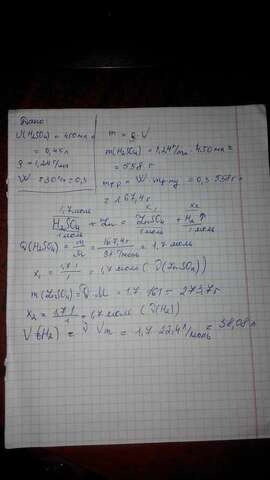 Дано:
V(H₂SO₄) = 450 мл =
= 0,45 л
ρ = 1,24 г/мл
W = 30% = 0,3
m = ρ · V
m(H₂SO₄) = 1,24 г/мл · 450 мл =
= 558 г
mр.в = W · mр-ру = 0,3 · 558 г
= 167,4 г
1,7 моль x₁ x₂
H₂SO₄ + Zn = ZnSO₄ + H₂ ↑
1 моль 1 моль 1 моль
ν(H₂SO₄) = m/M = 167,4 г / 98 г/моль = 1,7 моль
x₁ = 1,7·1/1 = 1,7 моль (ν(ZnSO₄))
m(ZnSO₄) = ν · M = 1,7 · 161 = 273,7 г
x₂ = 1,7·1/1 = 1,7 моль (ν(H₂))
V(H₂) = ν · Vm = 1,7 · 22,4 л/моль = 38,08 л